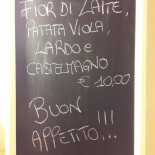 FIOR DI LATTE,
PATATA VIOLA,
LARDO e
CASTELMAGNO
€ 10,00
BUON
APPETITO!!!